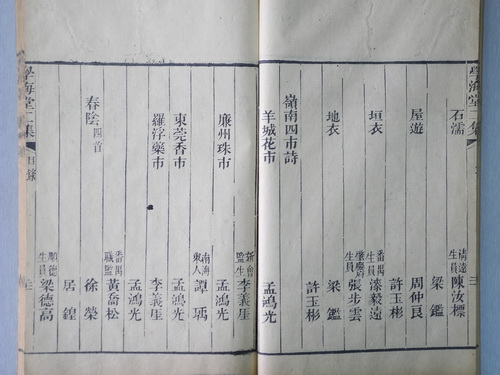 學海堂二集
石濡 清遠生員 陳汝標
梁鑑
屋遊 周仲良
許玉彬
垣衣 番禺生員 漆毅遠
肇慶府生員 張步雲
地衣 梁鑑
許玉彬
嶺南四市詩
羊城花市 孟鴻光
新會監生 李義厓
廉州珠市 孟鴻光
南海 譚瑀
東莞香市 孟鴻光
羅浮藥市 李義厓
孟鴻光
番禺職監 黃喬松
春陰四首 徐榮
居鍠
順德生員 梁德高
學海堂二集 目錄